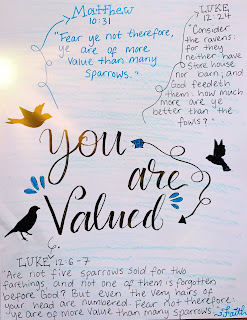 Matthew
10:31
"Fear ye not therefore,
ye are of more
value than many
sparrows."
LUKE
12:24
"Consider
the ravens:
for they
neither have
store house
nor barn; and
God feedeth
them: how much
more are ye
better than the
fowls?"
You
are
Valued
LUKE 12:6-7
"Are not five sparrows sold for two
farthings, and not one of them is forgotten
before God? But even the very hairs of
your head are numbered. Fear not therefore:
ye are of more value than many sparrows."
Faith